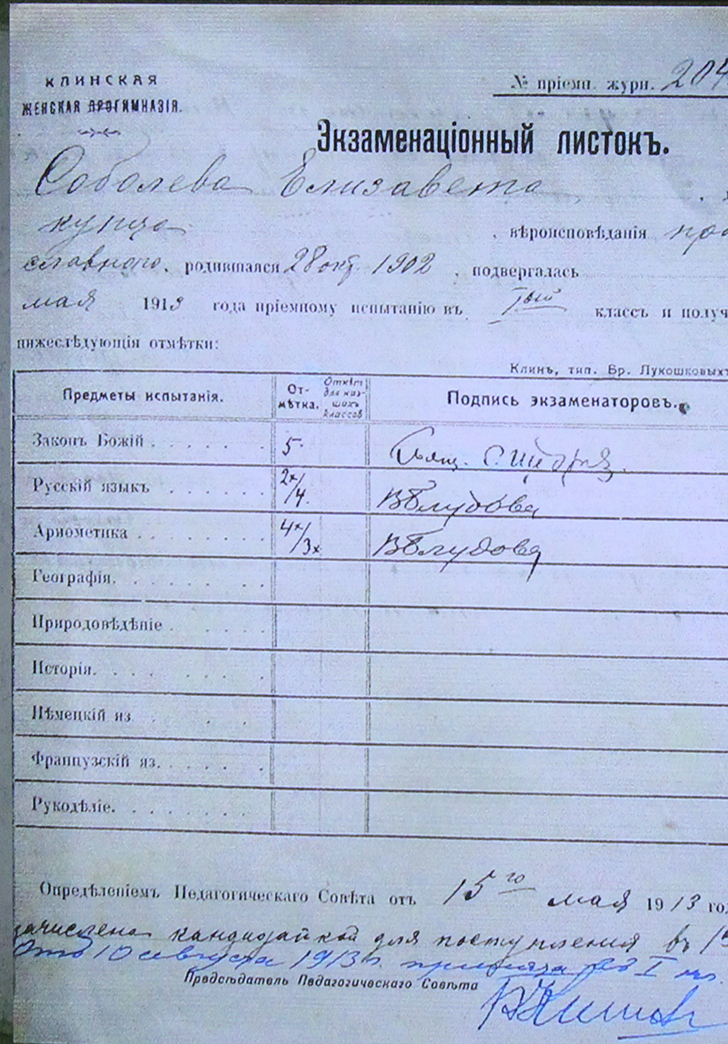 КЛИНСКАЯ
ЖЕНСКАЯ ПРОГИМНАЗІЯ.
№ пріемн. журн. 204
Экзаменаціонный листокъ.
Соболева Елизавета
купца
, вѣроисповѣданія пра
славнаго, родившаяся 28 окт 1902, подвергалась
мая 1913 года пріемному испытанію въ Iый классъ и получ
нижеслѣдующія отмѣтки:
Клинъ, тип. Бр. Лукошковыхъ
Предметы испытанія. От-мѣтка. Подпись экзаменаторовъ.
Законъ Божій 5 Свящ.
Русскій языкъ 2х/4. ВБлудова
Ариѳметика 4х/3х ВБлудова
Географія.
Природовѣдѣніе
Исторія.
Нѣмецкій яз
Французскій яз.
Рукодѣліе.
Опредѣленіемъ Педагогическаго Совѣта отъ 15го мая 1913 го
зачислена кандидаткой для поступления въ
10 августа 1913 г. принята въ I кл.
Предсѣдатель Педагогическаго Совѣта